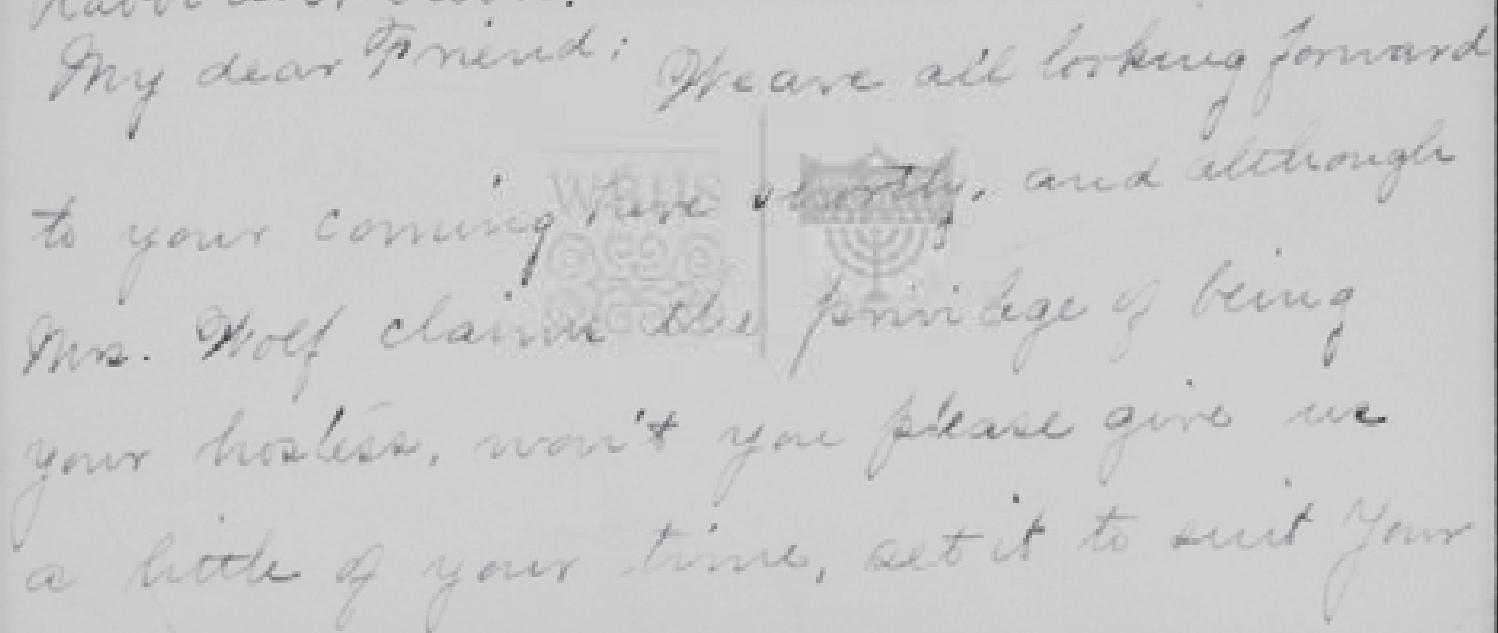 My dear Friend: We are all looking forward
to your coming here shortly, and although
Mrs. Wolf claims the privilege of being
your hostess, won't you please give us
a little of your time, set it to suit your
WRHS